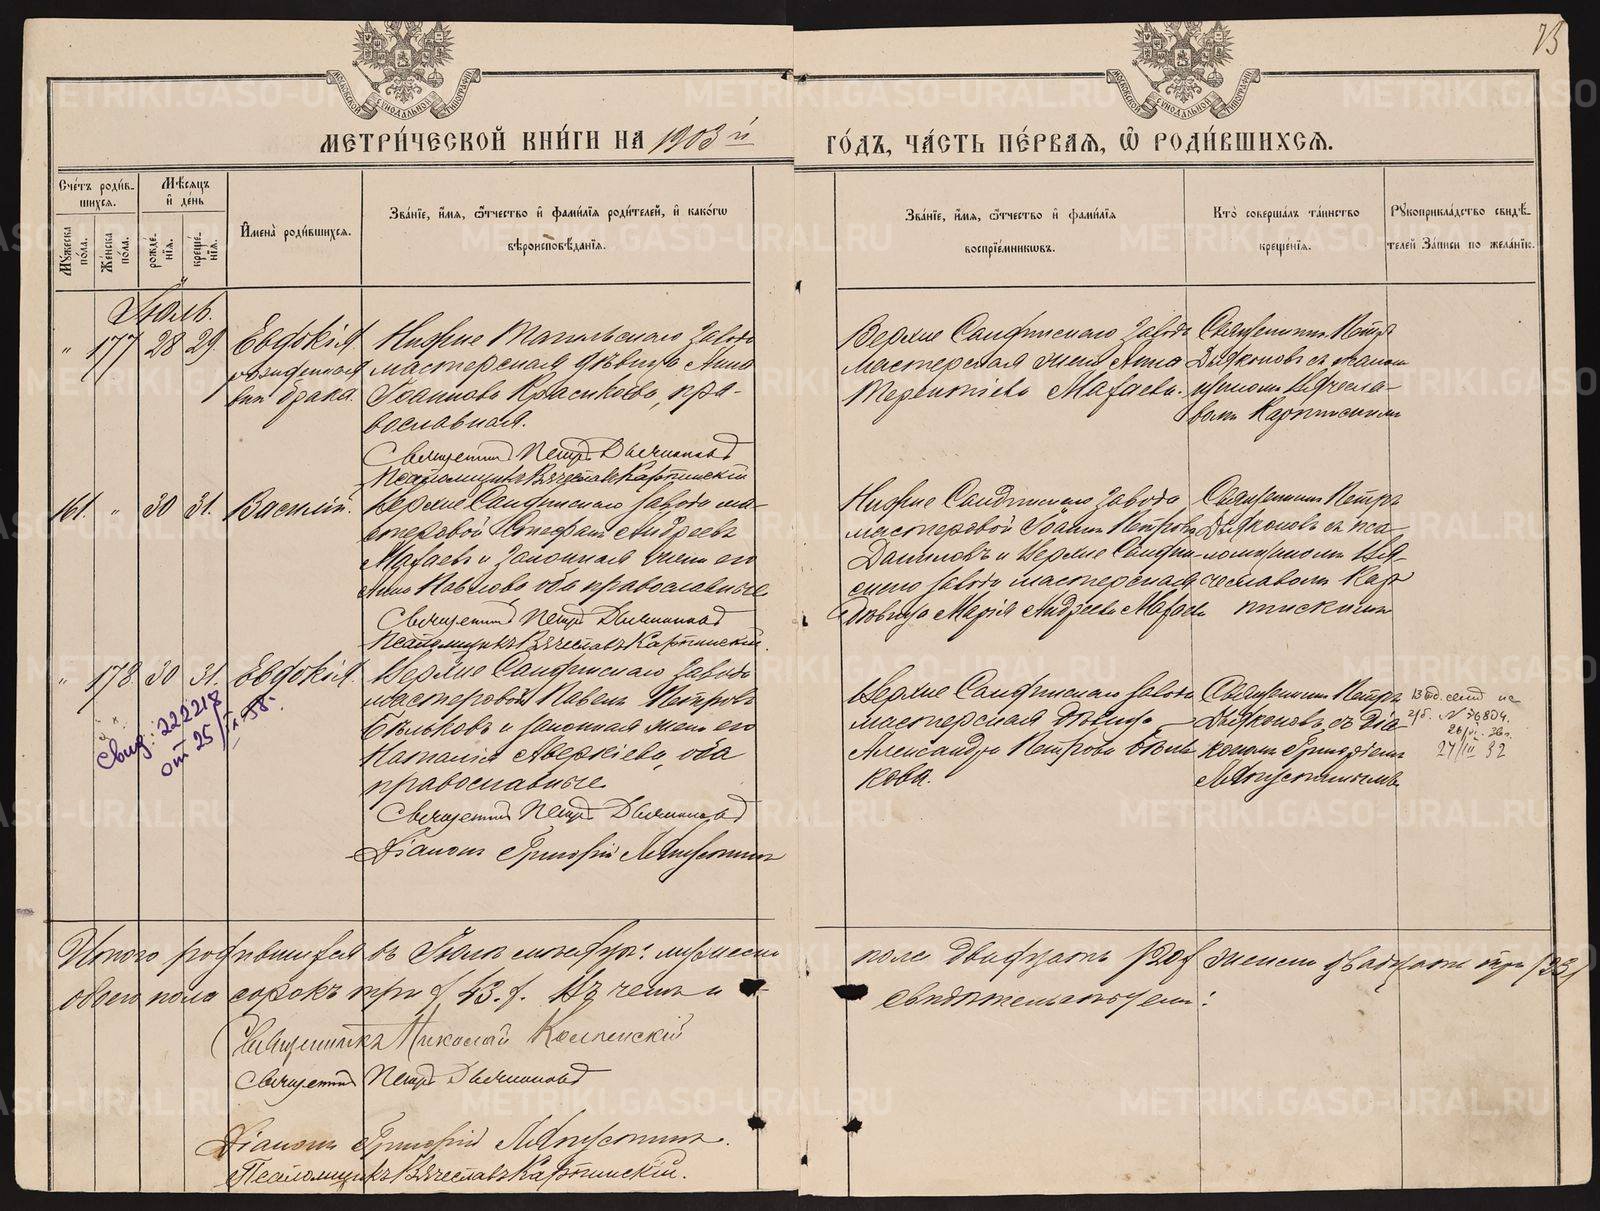 73
МЕТРИ́ЧЕСКОЙ КНИ́ГИ НА 1903 й
ГО́ДЪ, ЧА́СТЬ ПЕ́РВАѦ, Ѡ҆ РОДИ́ВШИХСѦ.
Сче́тъ роди́в-
шихсѧ.
Мѣ́сѧцъ
и҆ де́нь
Мꙋ́жеска по́ла.
Же́нска по́ла.
рожде́-
нїѧ.
креще́-
нїѧ.
И҆мена̀ роди́вшихсѧ.
Зва́нїе, и҆́мѧ, ѻ҆́тчество и҆ фами́лїѧ роди́телей, и҆ како́гѡ
вѣроисповѣ́данїѧ.
Зва́нїе, и҆́мѧ, ѻ҆́тчество и҆ фами́лїѧ
воспрїе́мникѡвъ.
Кто̀ соверша́лъ та́инство
креще́нїѧ.
Рꙋкоприкла́дство свидѣ́-
телей за́писи по жела́нїю.
Іюль.
" 177 28 29 Евдокія
рожденная
внѣ брака.
Нижне Тагильскаго завода
мастерская дѣвица Анна
Іоаннова Красикова, пра-
вославная.
Священникъ Петръ Дьяконовъ
Псаломщикъ Вячеславъ Карпинскій
Верхне Салдинскаго завода
мастерская жена Анна
Терентіева Мазаева.
Священникъ Петръ
Дьяконовъ съ псалом-
щикомъ Вячесла-
вомъ Карпинскимъ
161. " 30 31. Василій.
Верхне Салдинскаго завода ма-
стеровой Андреевъ
Мазаевъ и законная жена его
Анна Павлова оба православные
Священникъ Петръ Дьяконовъ
Псаломщикъ Вячеславъ Карпинскій.
Нижне Салдинскаго завода
мастеровой Іоаннъ Петровъ
Даниловъ и Верхне Салдин-
скаго завода мастерская
дѣвица Марія Андреева Мазаева
Священникъ Петръ
Дьяконовъ съ пса-
ломщикомъ Вя-
чеславомъ Кар-
пинскимъ
" 178. 30 31. Евдокія.
Верхне Салдинскаго завода
мастеровой Павелъ Петровъ
Бѣльковъ и законная жена его
Наталія Аверкіева, оба
православные
Священникъ Петръ Дьяконовъ
Діаконъ Григорій Ляпустинъ
Свид: 222218
от 25/IX-58г.
Верхне Салдинскаго завода
мастерская дѣвица
Александра Петрова Бѣль-
кова.
Священникъ Петръ
Дьяконовъ съ діа-
кономъ Григоріемъ
Ляпустинымъ
№ 76804.
27/III 32
Итого родившихся въ Іюлѣ мѣсяцѣ: мужеска
пола двадцать /20/ женска двадцать три /23/
обоего пола сорокъ три /43/. Въ чемъ и
свидѣтельствуемъ:
Священникъ Николай
Священникъ Петръ Дьяконовъ
Діаконъ Григорій Ляпустинъ.
Псаломщикъ Вячеславъ Карпинскій.